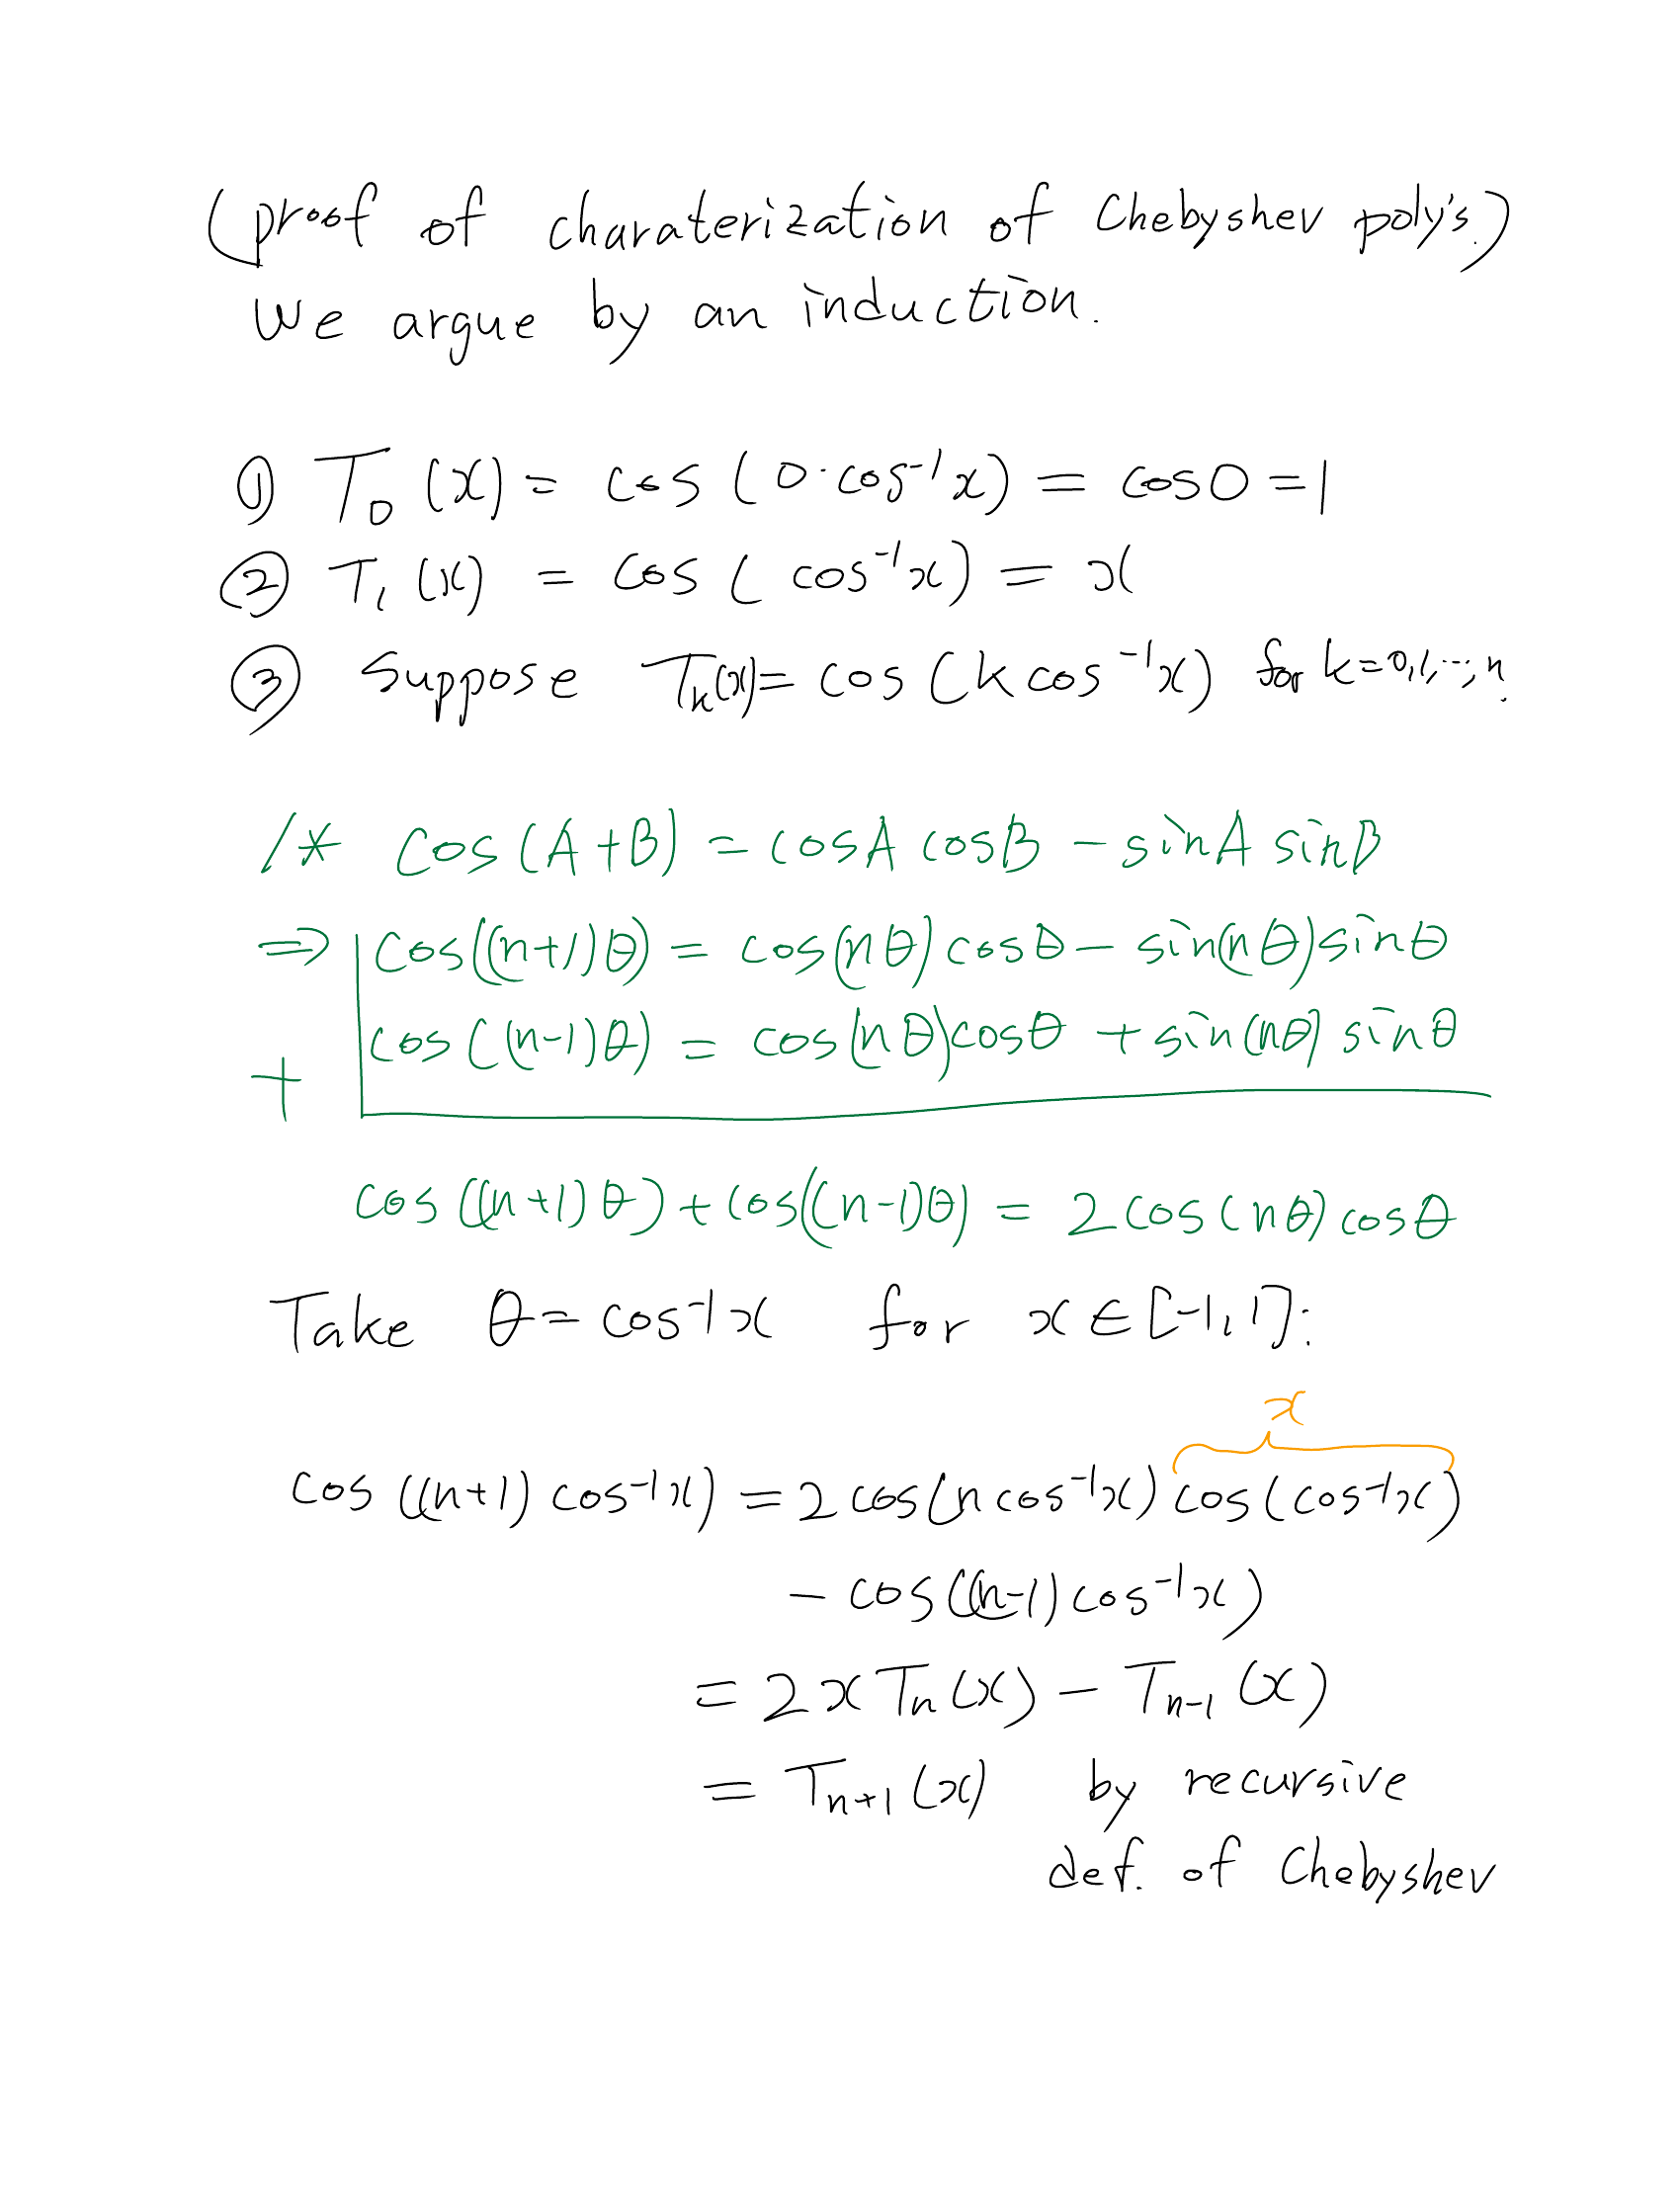 (proof of charaterization of Chebyshev poly's.)
We argue by an induction.
① T₀(x) = cos(0·cos⁻¹x) = cos0 = 1
② T₁(x) = cos(cos⁻¹x) = x
③ Suppose Tₖ(x) = cos(k cos⁻¹x) for k=0,1,⋯,n.
/* cos(A+B) = cosA cosB − sinA sinB
⇒ cos((n+1)θ) = cos(nθ)cosθ − sin(nθ)sinθ
+ cos((n-1)θ) = cos(nθ)cosθ + sin(nθ)sinθ
cos((n+1)θ) + cos((n-1)θ) = 2cos(nθ)cosθ
Take θ = cos⁻¹x for x∈[-1,1]:
x
cos((n+1)cos⁻¹x) = 2cos(n cos⁻¹x)cos(cos⁻¹x)
− cos((n-1)cos⁻¹x)
= 2xTₙ(x) − Tₙ₋₁(x)
= Tₙ₊₁(x) by recursive
def. of Chebyshev